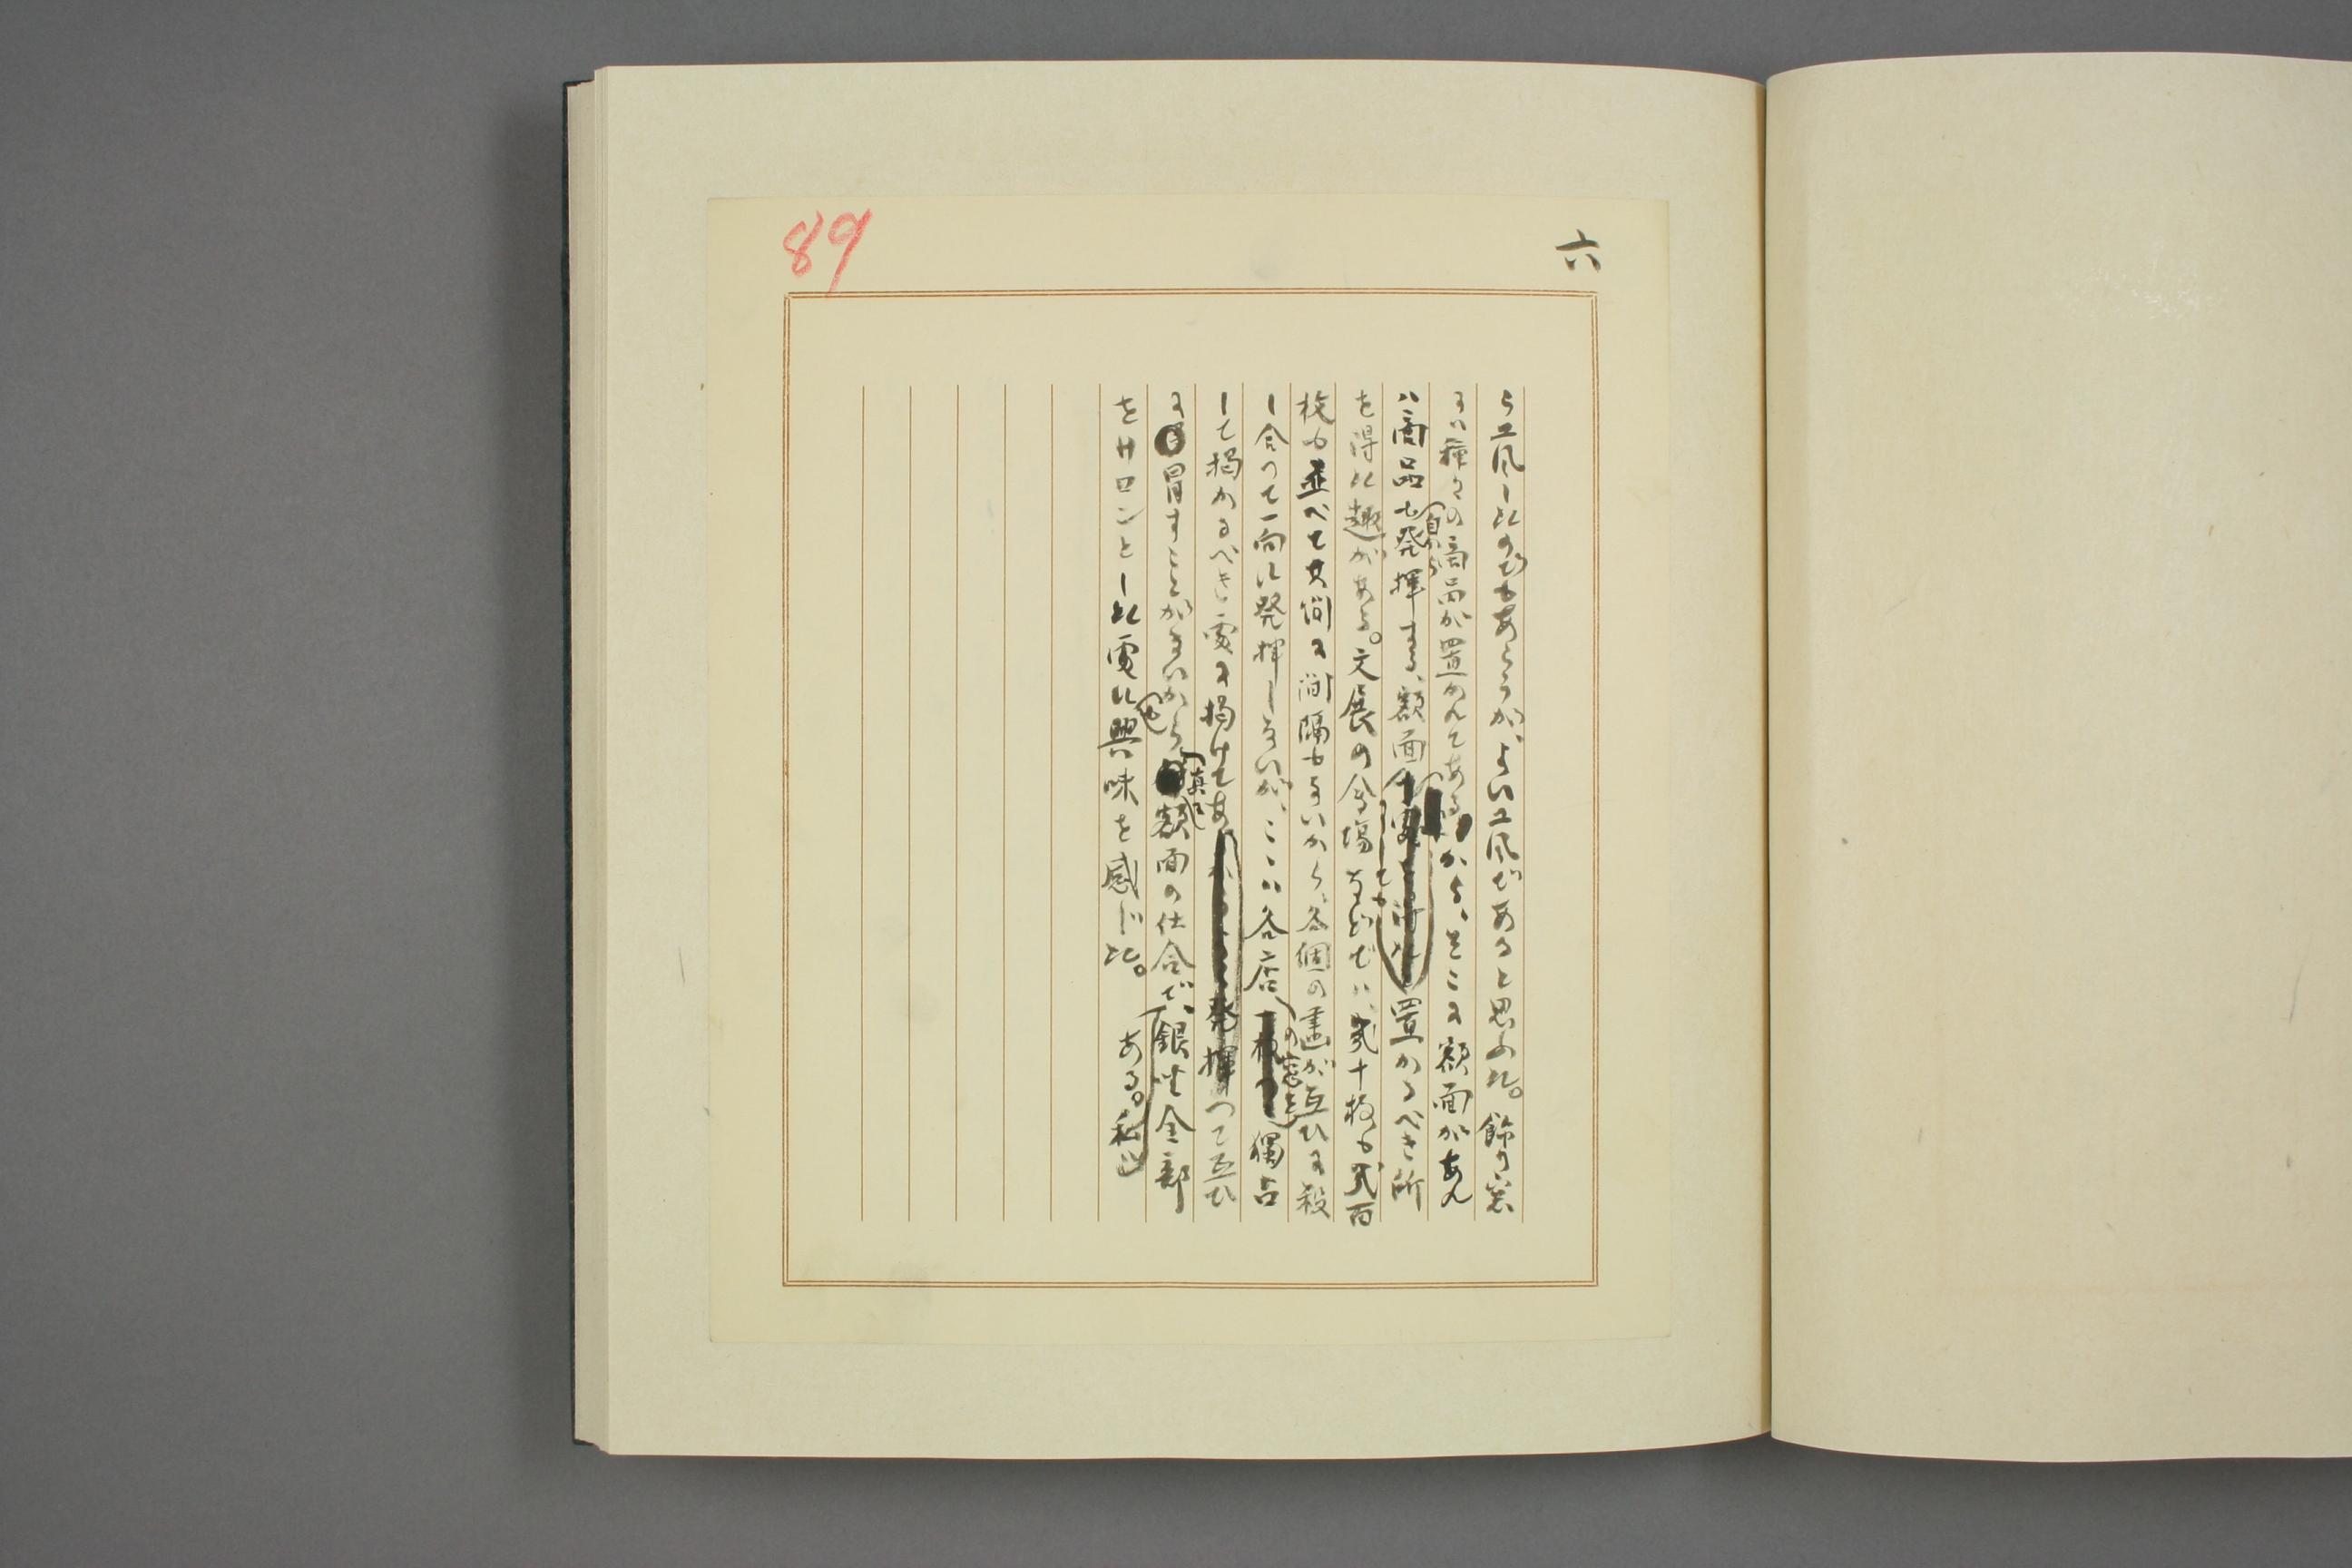 六
89
う工風したのでもあらうが、よい工風であると思ふた。飾り窓
には種々の商品が置かれてあるから、そこに額面があれ
ハ商品も自から発揮する、額面としても置かるべき所
を得た趣がある。文展の会場などでハ、弐十枚も弐百
枚も並べて其間に間隔もないから、各個の画が互ひに殺
し合つて一向に発揮しないが、こゝハ各店の窓を獨占
して掲かるべき處に掲けてあつて互ひ
に冒すことがないから、真に額面の仕合で、銀座全部
をサロンとした處に興味を感じた。
ある。私は